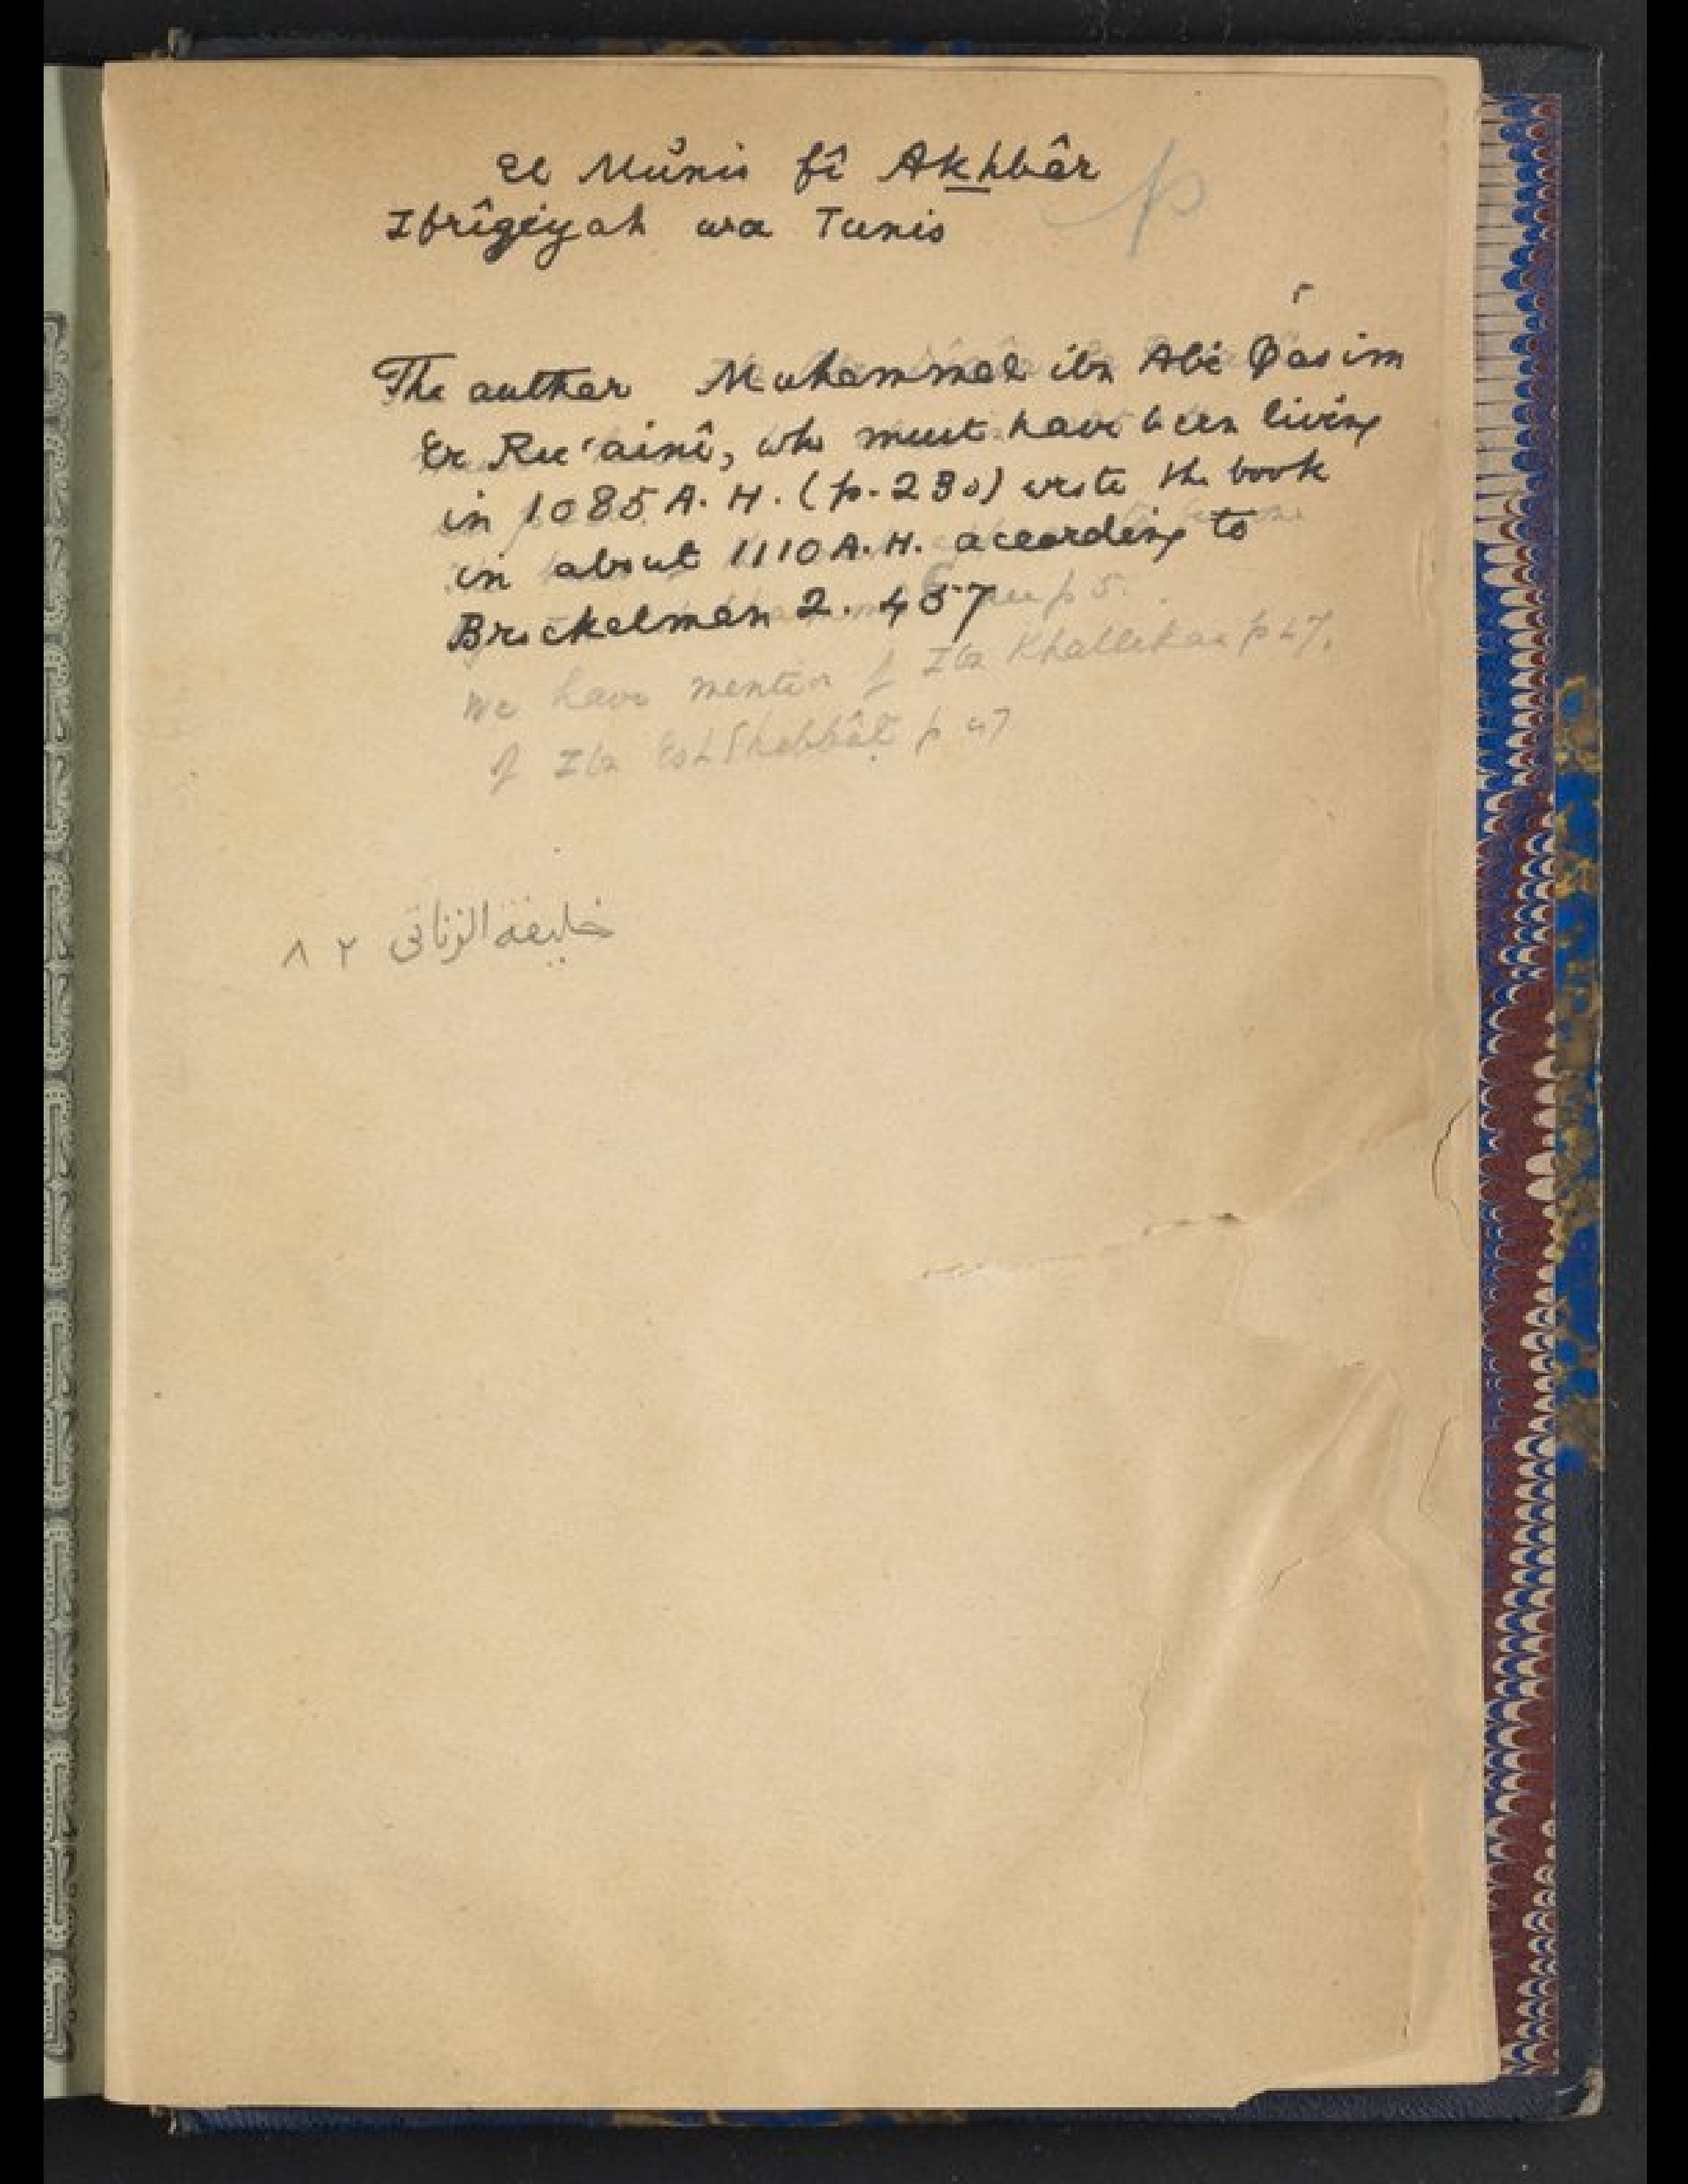 El Mûnis fî Akhbâr
Ifrîqiyah wa Tunis
p
The author Muhammad ibn Abî Qasim
Er Ru'ainî, who must have been living
in 1085 A. H. (p. 230) wrote the book
in about 1110 A. H. according to
Brockelman 2. 457
see p 5.
We have mention of Ibn Khallikan p 47.
of Ibn Esh Shabbâṭ p 47
خليفة الزناتى ٨٢